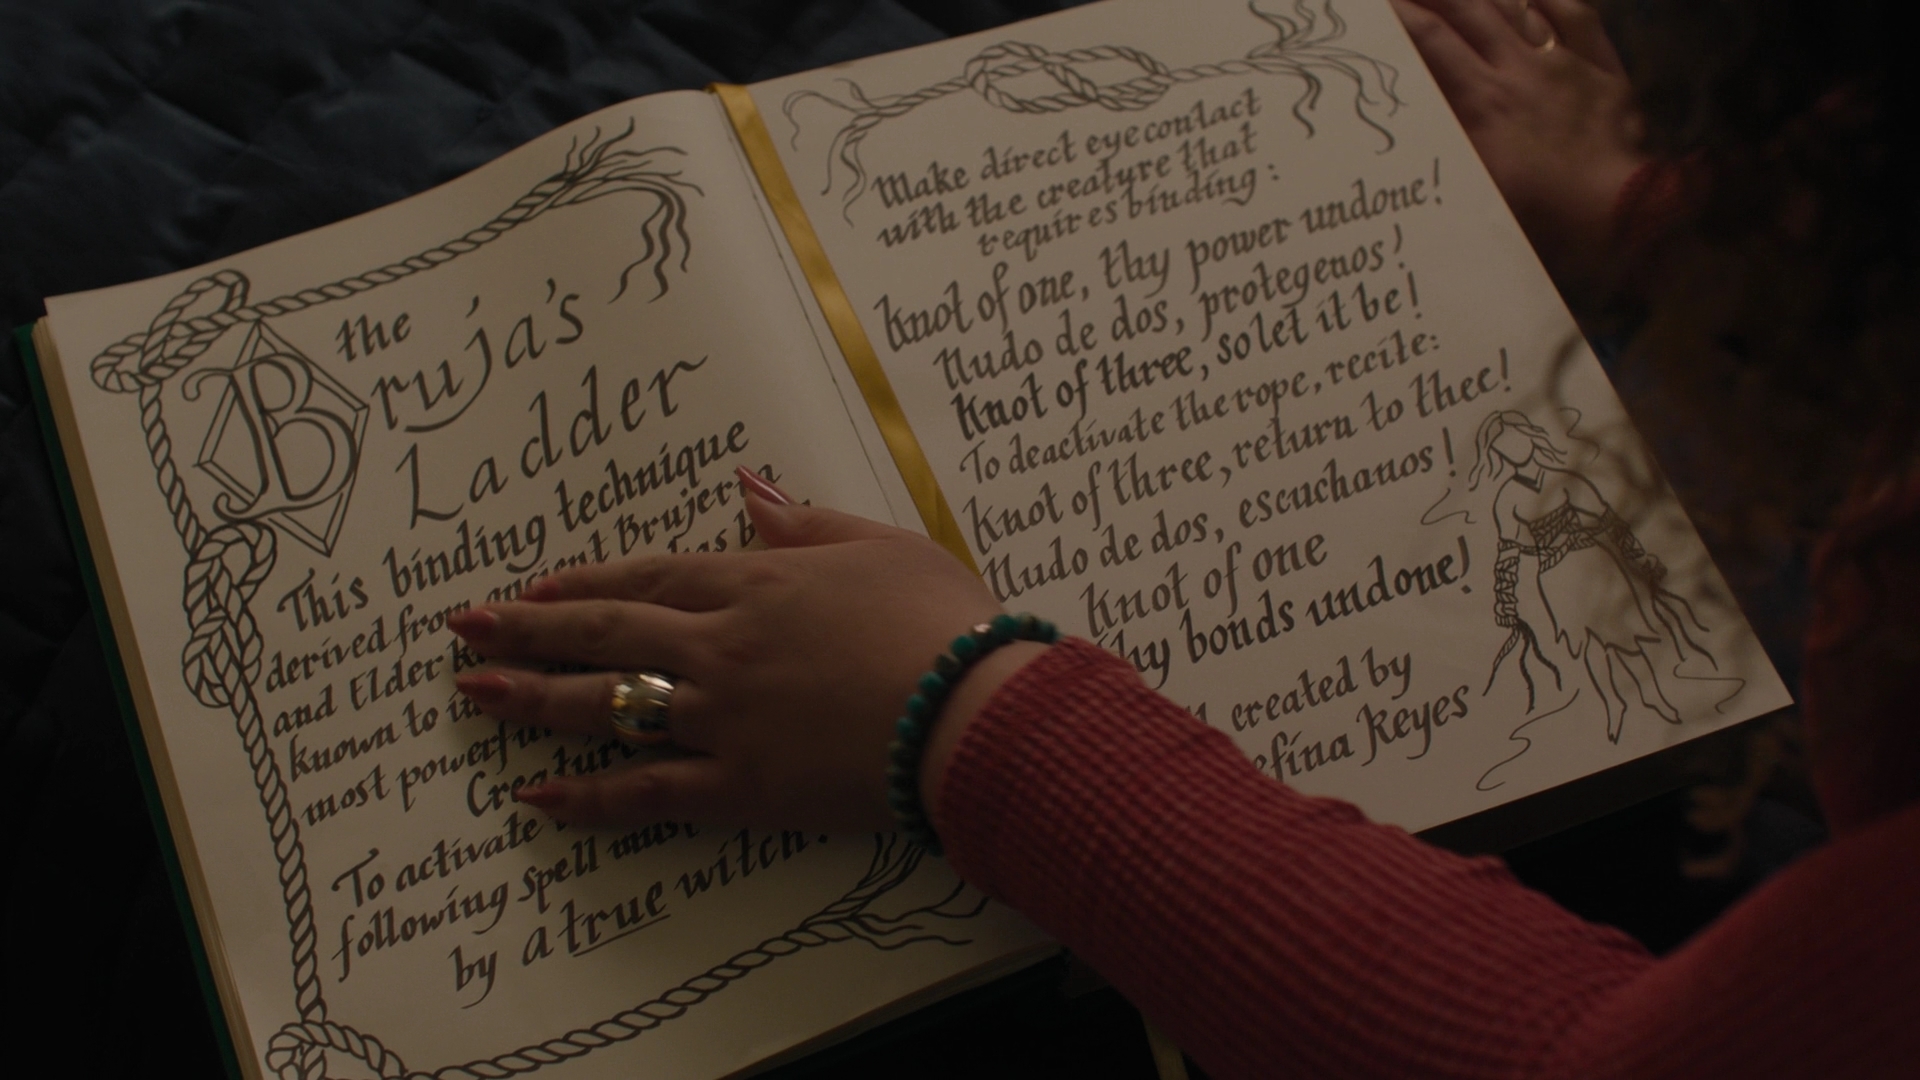 the
Bruja's
Ladder
This binding technique
derived from ancient Brujería
and Elder has
known to
most powerful
To activate
following spell must
by a true witch.
Make direct eye contact
with the creature that
requires binding:
Knot of one, thy power undone!
Nudo de dos, protegenos!
Knot of three, so let it be!
To deactivate the rope, recite:
Knot of three, return to thee!
Nudo de dos, escuchanos!
Knot of one
thy bonds undone!
created by
Keyes